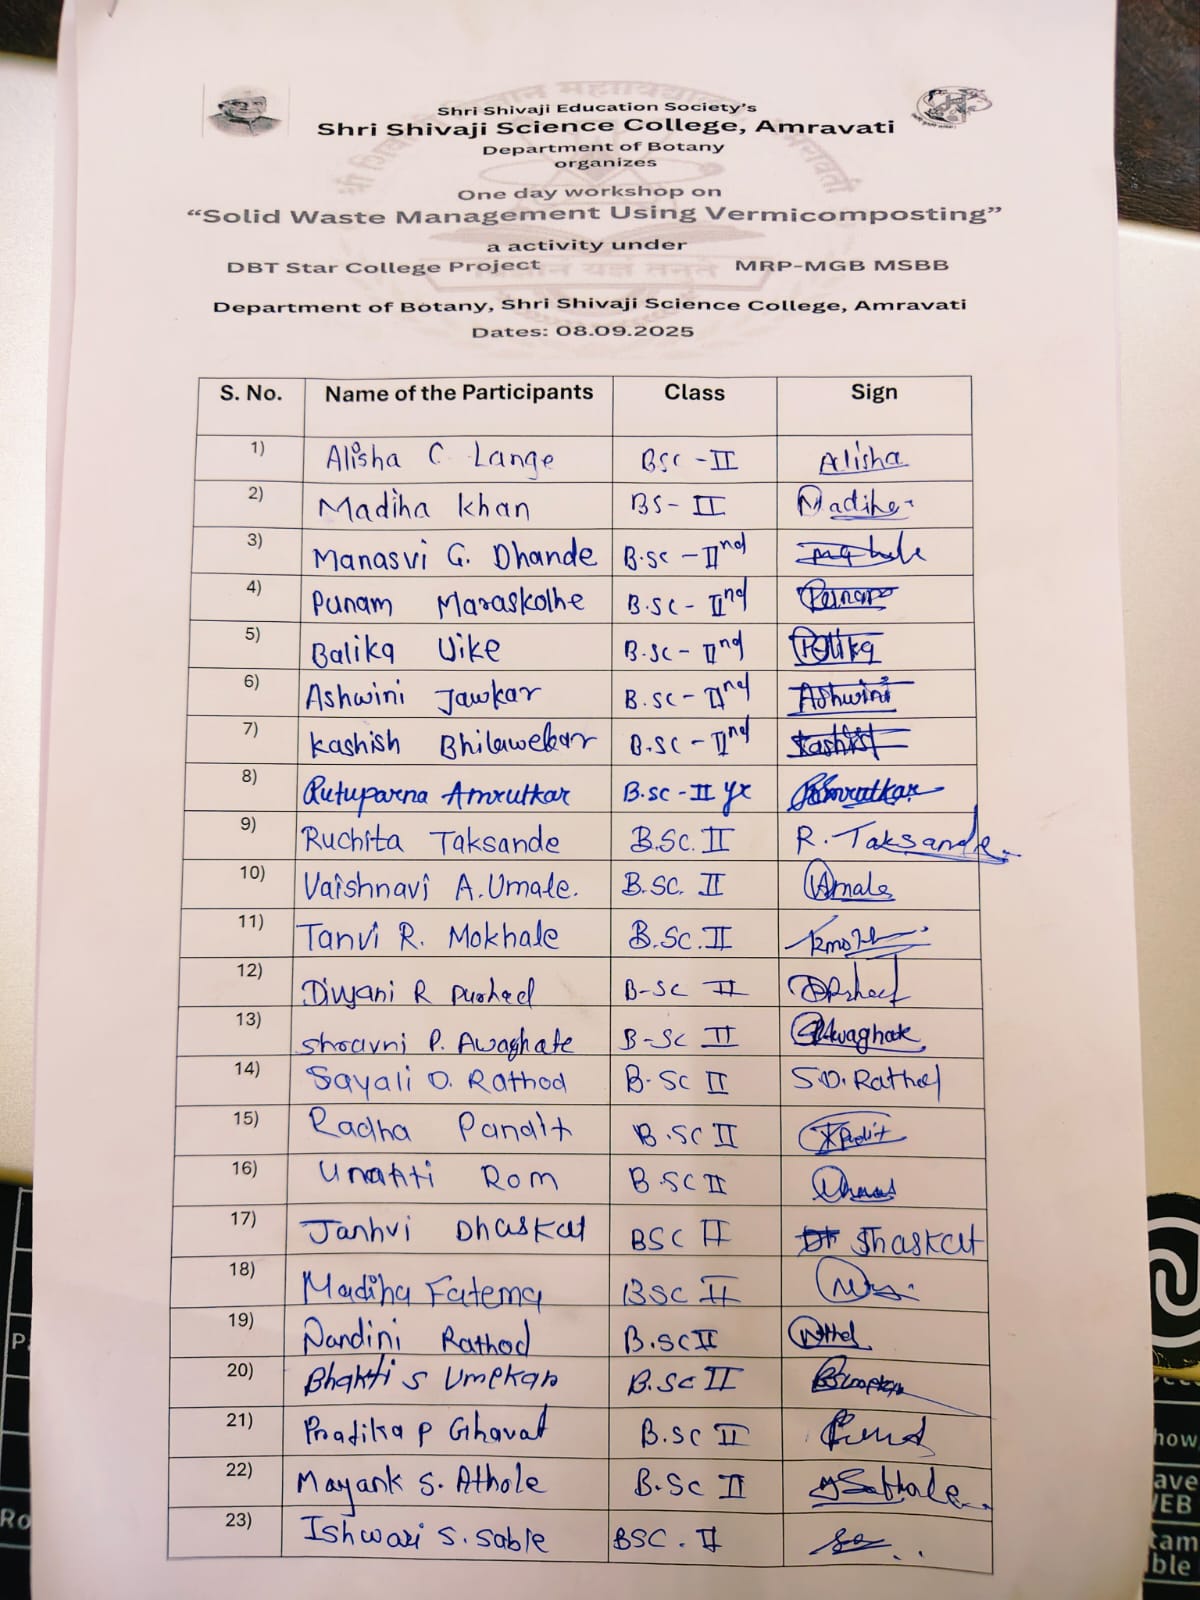 Shri Shivaji Education Society's
Shri Shivaji Science College, Amravati
Department of Botany
organizes
One day workshop on
“Solid Waste Management Using Vermicomposting”
a activity under
DBT Star College Project MRP-MGB MSBB
Department of Botany, Shri Shivaji Science College, Amravati
Dates: 08.09.2025
S. No. Name of the Participants Class Sign
1) Alisha C Lange BSC-II Alisha
2) Madiha khan BS-II Madiha
3) Manasvi G. Dhande B.sc-IInd
4) Punam Maraskolhe B.sc-IInd Punam
5) Balika Uike B.sc-IInd
6) Ashwini Jawkar B.sc-IInd Ashwini
7) kashish Bhilawekar B.sc-IInd kashish
8) Rutuparna Amrutkar B.sc-II yr Amrutkar
9) Ruchita Taksande B.Sc. II R. Taksande
10) Vaishnavi A. Umale. B.SC. II Umale
11) Tanvi R. Mokhale B.Sc. II
12) Divyani R B-Sc II
13) shravni P. Awaghate B-Sc II Awaghate
14) Sayali D. Rathod B-Sc II S.D. Rathod
15) Radha Pandit B.SC II
16) Unatti Rom B.SC II
17) Janhvi Dhaskat BSC II Jhaskat
18) Madiha Fatema BSC II
19) Nandini Rathod B.SC II
20) Bhakti S Umekar B.SC II
21) P Ghavat B.SC II
22) Mayank S. Athole B.Sc II
23) Ishwari S. Sable BSC. II